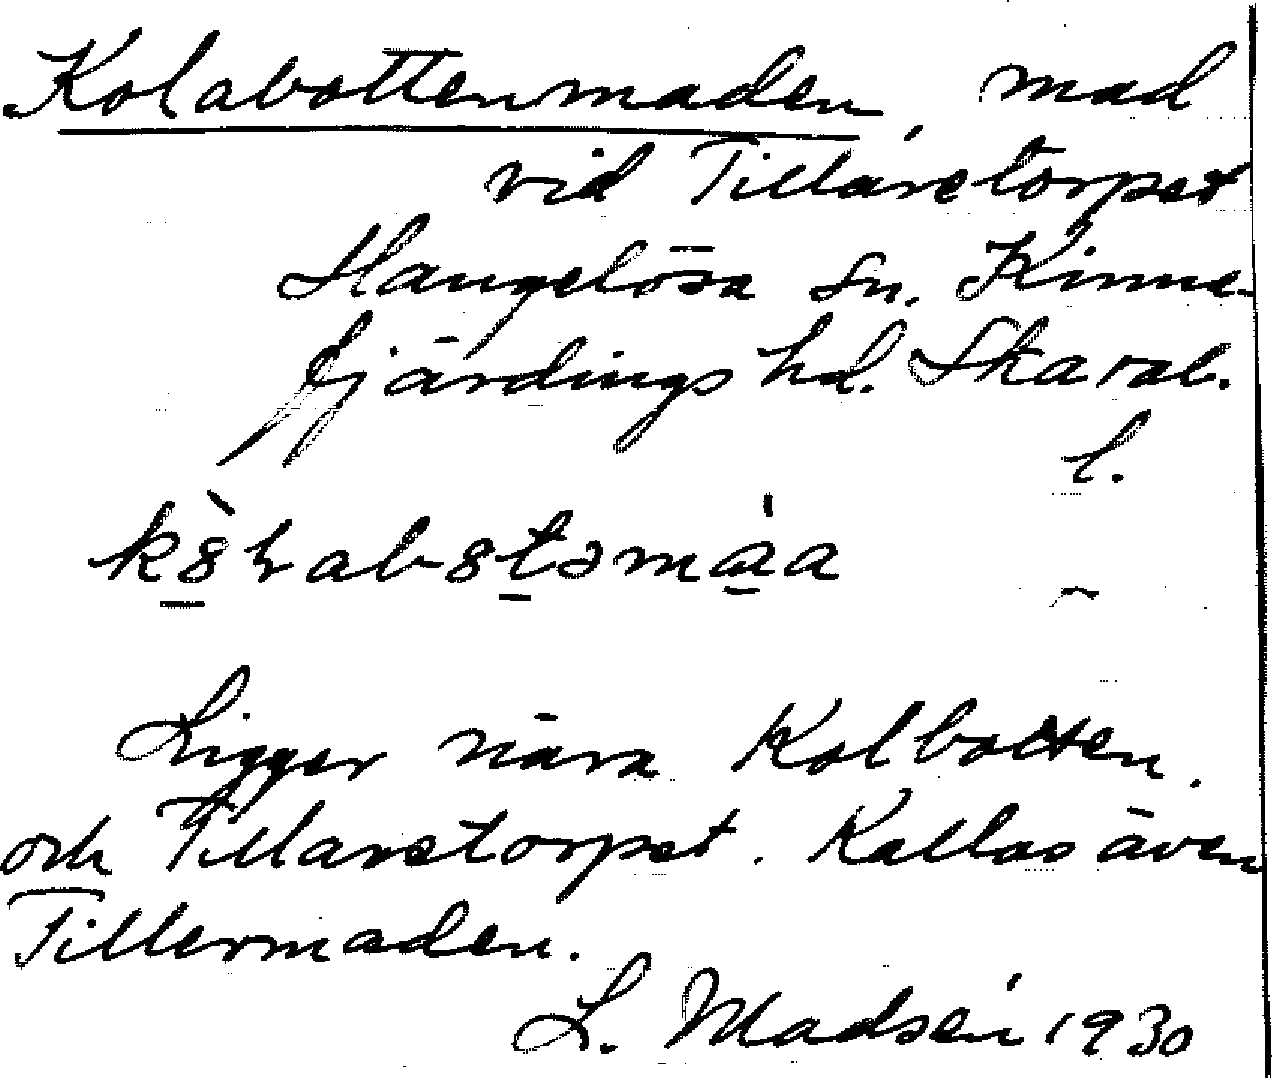 Kolabottenmaden, mad
vid Tillaretorpet
Slangelösa sn. Kinne-
fjärdings hd. Skarab.
l.
Ligger nära Kolbotten
och Tillaretorpet. Kallas även
Tillermaden.
L. Madsén 1930